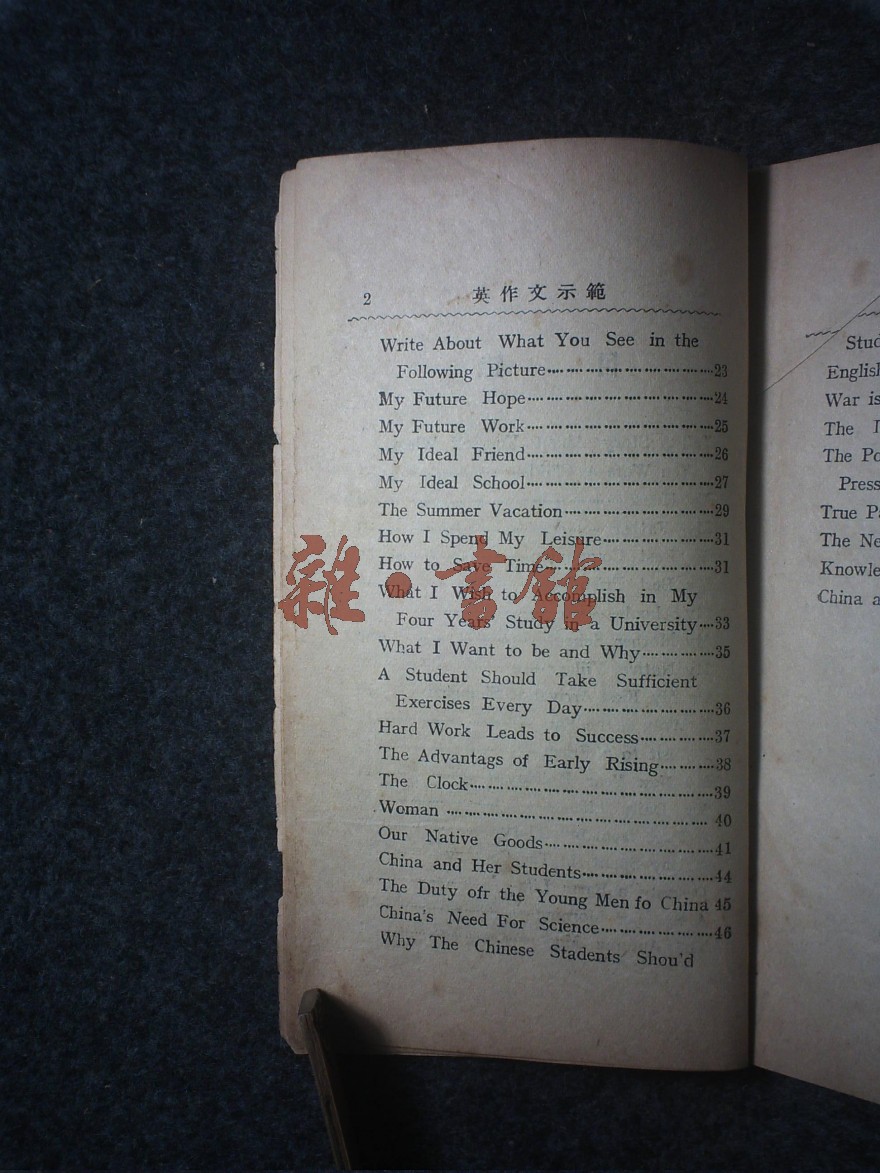 2 英作文示範
Write About What You See in the
Following Picture 23
My Future Hope 24
My Future Work 25
My Ideal Friend 26
My Ideal School 27
The Summer Vacation 29
How I Spend My Leisure 31
How to Save Time 31
What I Wish to Accomplish in My
Four Years' Study in a University 33
What I Want to be and Why 35
A Student Should Take Sufficient
Exercises Every Day 36
Hard Work Leads to Success 37
The Advantags of Early Rising 38
The Clock 39
Woman 40
Our Native Goods 41
China and Her Students 44
The Duty ofr the Young Men fo China 45
China's Need For Science 46
Why The Chinese Stadents Shou'd
雜·書館
Stud
English
War is
The
The Po
Press
True Pa
The Ne
Knowle
China a